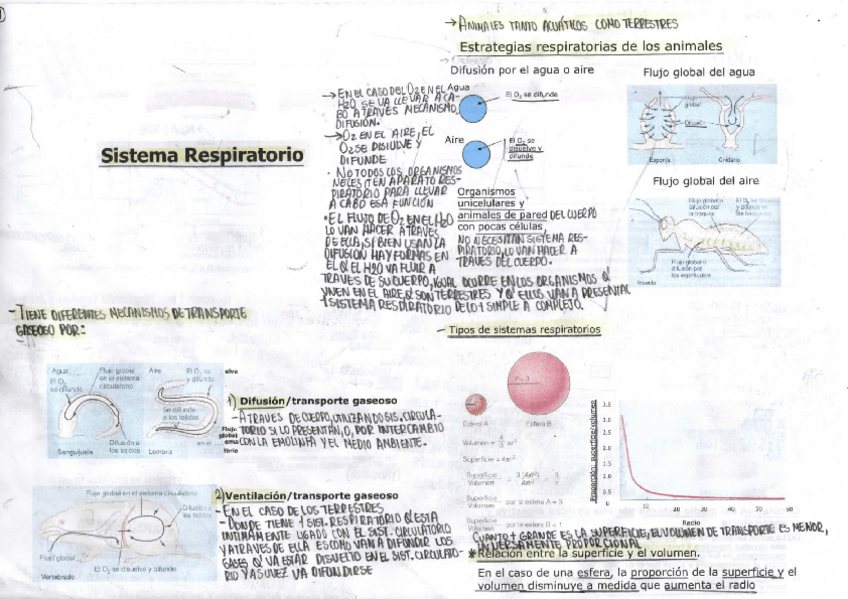 Sistema Respiratorio
→ ANIMALES TANTO ACUÁTICOS COMO TERRESTRES
Estrategias respiratorias de los animales
Difusión por el agua o aire
Agua
El O₂ se difunde
Aire
El O₂ se
disuelve y
difunde
Organismos
unicelulares y
animales de pared DEL CUERPO
con pocas células,
NO NECESITAN SISTEMA RES-
PIRATORIO, LO VAN HACER A
TRAVES DEL CUERPO.
Flujo global del agua
Flujo
global
Difusión
Esponja
Cnidario
Flujo global del aire
Flujo global o
difusión por
la tráquea
El O₂ se disuelve
y difunde en
los tejidos
Flujo global o
difusión por
los espiráculos
Insecto
→ EN EL CASO DEL O₂ EN EL
H2O SE VA LLEVAR A CA-
BO A TRAVÉS MECANISMO
DIFUSIÓN.
→ O₂ EN EL AIRE, EL
O₂ SE DISUELVE Y
DIFUNDE
• NO TODOS LOS ORGANISMOS
NECESITEN APARATO RES-
PIRATORIO PARA LLEVAR
A CABO ESA FUNCIÓN
• EL FLUJO DE O₂ EN EL H2O
LO VAN HACER A TRAVES
DE ELLA, SI BIEN USAN LA
DIFUSIÓN HAY FORMAS EN
EL Q EL H2O VA FLUIR A
TRAVES DE SU CUERPO, IGUAL OCURRE EN LOS ORGANISMOS Q
VIVEN EN EL AIRE Q SON TERRESTRES Y Q ELLOS VAN A PRESENTAR
1 SISTEMA RESPIRATORIO DE LO + SIMPLE A COMPLEJO.
- TIENE DIFERENTES MECANISMOS DE TRANSPORTE
GASEOSO POR:
Agua
El O₂
se difunde
Flujo global
en el sistema
circulatorio
Difusión a
los tejidos
Sanguijuela
Aire
El O₂ se
y difunde
Se difunde
a los tejidos
Lombriz
Flujo
global
en el
1) Difusión/transporte gaseoso
- A TRAVES DE CUERPO, UTILIZANDO SIS. CIRCULA-
TORIO SI LO PRESENTAN, O, POR INTERCAMBIO
CON LA EMOLINFA Y EL MEDIO AMBIENTE.
Flujo global en el sistema circulatorio
Difusión a
los tejidos
Flujo global
El O₂ se disuelve y difunde
Vertebrado
2) Ventilación/transporte gaseoso
- EN EL CASO DE LOS TERRESTRES
- DONDE TIENE 1 SIST. RESPIRATORIO Q ESTA
INTIMAMENTE LIGADO CON EL SIST. CIRCULATORIO
Y A TRAVES DE ELLA ES COMO VAN A DIFUNDIR LOS
GASES Q VA ESTAR DISUELTO EN EL SIST. CIRCULATO-
RIO Y A SU VEZ VA DIFUNDIRSE
- Tipos de sistemas respiratorios
r = 3
Esfera A
Esfera B
Volumen = 4/3 πr³
Superficie = 4πr²
Superficie
Volumen
Superficie
Volumen
por la esfera A = 3
Superficie
Volumen
por la esfera B = 1
Proporción: superficie/volumen
3.5
3.0
2.5
2.0
1.5
1.0
0.5
0
10
20
30
40
50
60
Radio
CUANTO + GRANDE ES LA SUPERFICIE, EL VOLUMEN DE TRANSPORTE ES MENOR,
INVERSAMENTE PROPORCIONAL
* Relación entre la superficie y el volumen.
En el caso de una esfera, la proporción de la superficie y el
volumen disminuye a medida que aumenta el radio